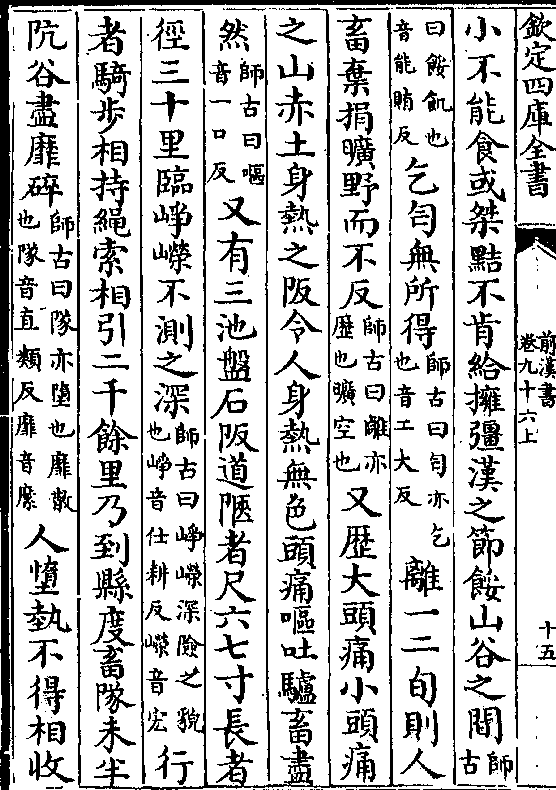 欽定四庫全書
前漢書
卷九十六上
十五
小不能食或桀黠不肯給擁彊漢之節餒山谷之間師古
曰餒飢也音能賄反乞匄無所得師古曰匄亦乞也音工大反離一二旬則人
畜棄捐曠野而不反師古曰離亦歴也曠空也又歴大頭痛小頭痛
之山赤土身熱之阪令人身熱無色頭痛嘔吐驢畜盡
然師古曰嘔音一口反又有三池盤石阪道陿者尺六七寸長者
徑三十里臨崢嶸不測之深師古曰崢嶸深險之貌也崢音仕耕反嶸音宏行
者騎步相持繩索相引二千餘里乃到縣度畜隊未半
阬谷盡靡碎師古曰隊亦墮也靡散也隊音直類反靡音縻人憜埶不得相收